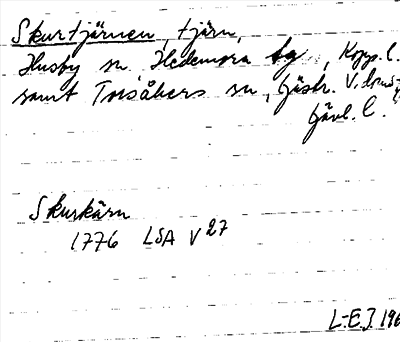 Skurtjärnen, tjärn,
Husby sn, Hedemora tg, Kopp. l.
samt Torsåkers sn, Gästr. V. doms-
Gävl. l.
Skurkärn
1776 LSA V 27
L-E.J. 196